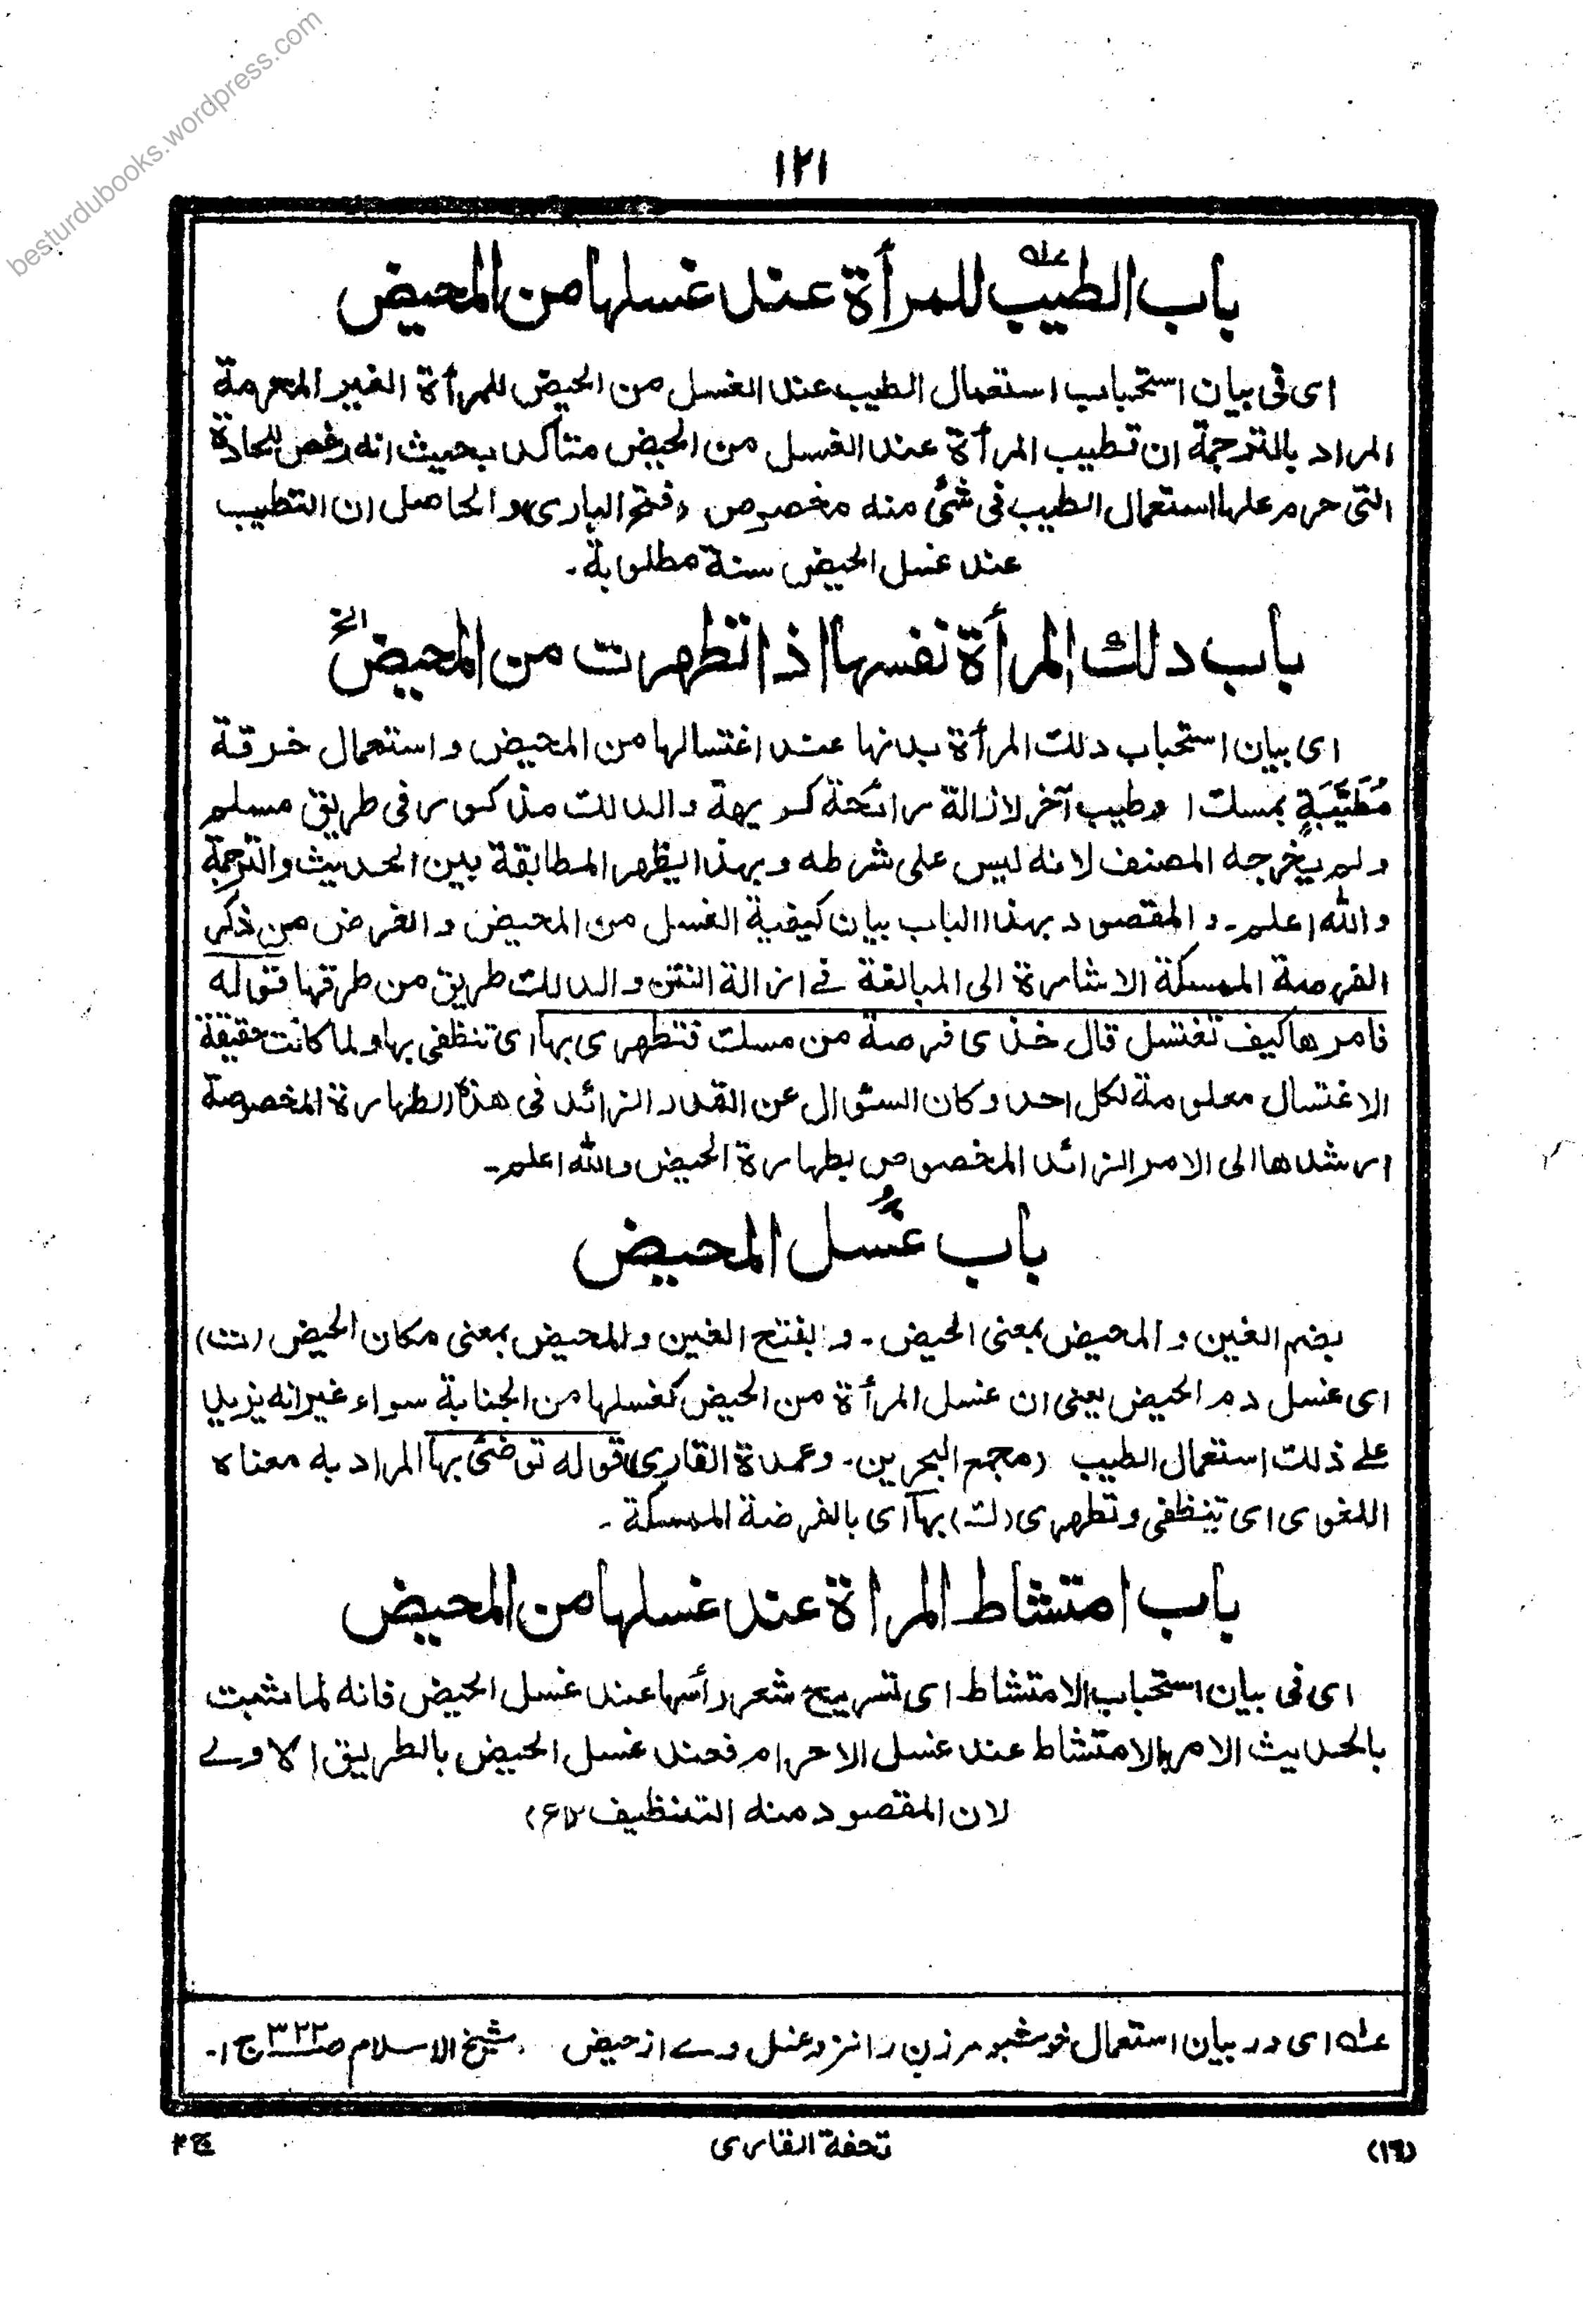 besturdubooks.wordpress.com
١٢١
باب الطيب عله للمرأة عند غسلها من المحيض
اى فى بيان استحباب استعمال الطيب عند الغسل من الحيض للمرأة الغير المحرمة
المراد بالترجمة ان تطييب المرأة عند الغسل من الحيض متأكد بحيث انه رخص للحادة
التى حرم عليها استعمال الطيب فى شئ منه مخصوص (فتح البارى) والحاصل ان التطييب
عند غسل الحيض سنة مطلوبة۔
باب دلك المرأة نفسها اذا تطهرت من المحيض الخ
اى بيان استحباب دلك المرأة بدنها عند اغتسالها من المحيض و استعمال خرقة
مُطَيَّبَةٍ بمسك او طيب آخر لازالة رائحة كريهة والدلك مذكور فى طريق مسلم
ولم يخرجه المصنف لانه ليس على شرطه وبهذا يظهر المطابقة بين الحديث والترجمة
والله اعلم۔ والمقصود بهذا الباب بيان كيفية الغسل من المحيض والغرض من ذكر
الفرصة الممسكة الاشارة الى المبالغة فے ازالة النتن والدلك طريق من طرقها قوله
فامرها كيف تغتسل قال خذى فرصة من مسك فتطهرى بها اى تنظفى بها ولما كانت حقيقة
الاغتسال معلومة لكل احد وكان السئوال عن القدر الزائد فى هذه الطهارة المخصوصة
ارشدها الى الامر الزائد المخصوص بطهارة الحيض والله اعلم۔
باب غُسل المحيض
بضم الغين والمحيض بمعنى الحيض۔ و بفتح الغين والمحيض بمعنى مكان الحيض (ك)
اى غسل دم الحيض يعنى ان غسل المرأة من الحيض كغسلها من الجنابة سواء غير انه يزيد
علے ذلك استعمال الطيب (مجمع البحرين۔ وعمدة القارى) قوله توضئى بها المراد به معناه
اللغوى اى تنظفى وتطهرى (ك) بها اى بالفرضة الممسكة۔
باب امتشاط المراة عند غسلها من المحيض
اى فى بيان استحباب الامتشاط اى تسريح شعر رأسها عند غسل الحيض فانه لما ثبت
بالحديث الامر بالامتشاط عند غسل الاحرام فعند غسل الحيض بالطريق الاولے
لان المقصود منه التنظيف ١٢ (ع)
عله اى در بيان استعمال خوشبو مر زن را نزد غسل وے از حيض ۔ شيخ الاسلام ص٣٢٢ ج ١۔
(١٦)
تحفة القارى
ج ٢